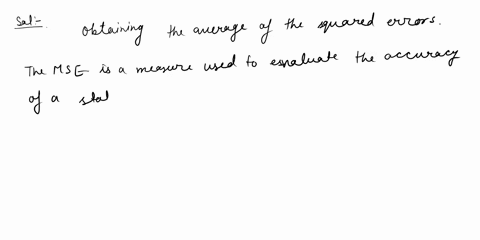 Sol:- Obtaining the average of the squared errors.
The MSE is a measure used to evaluate the accuracy
of a stat